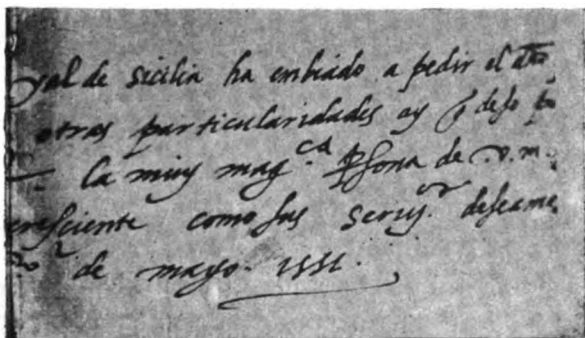 yal de sicilia ha embiado a pedir el año
otras particularidades ay q̃ deso po
la muy mag.ca p̱sona de .v.m.
cresciente como sus seruy.or deseamo
de mayo. 1551.